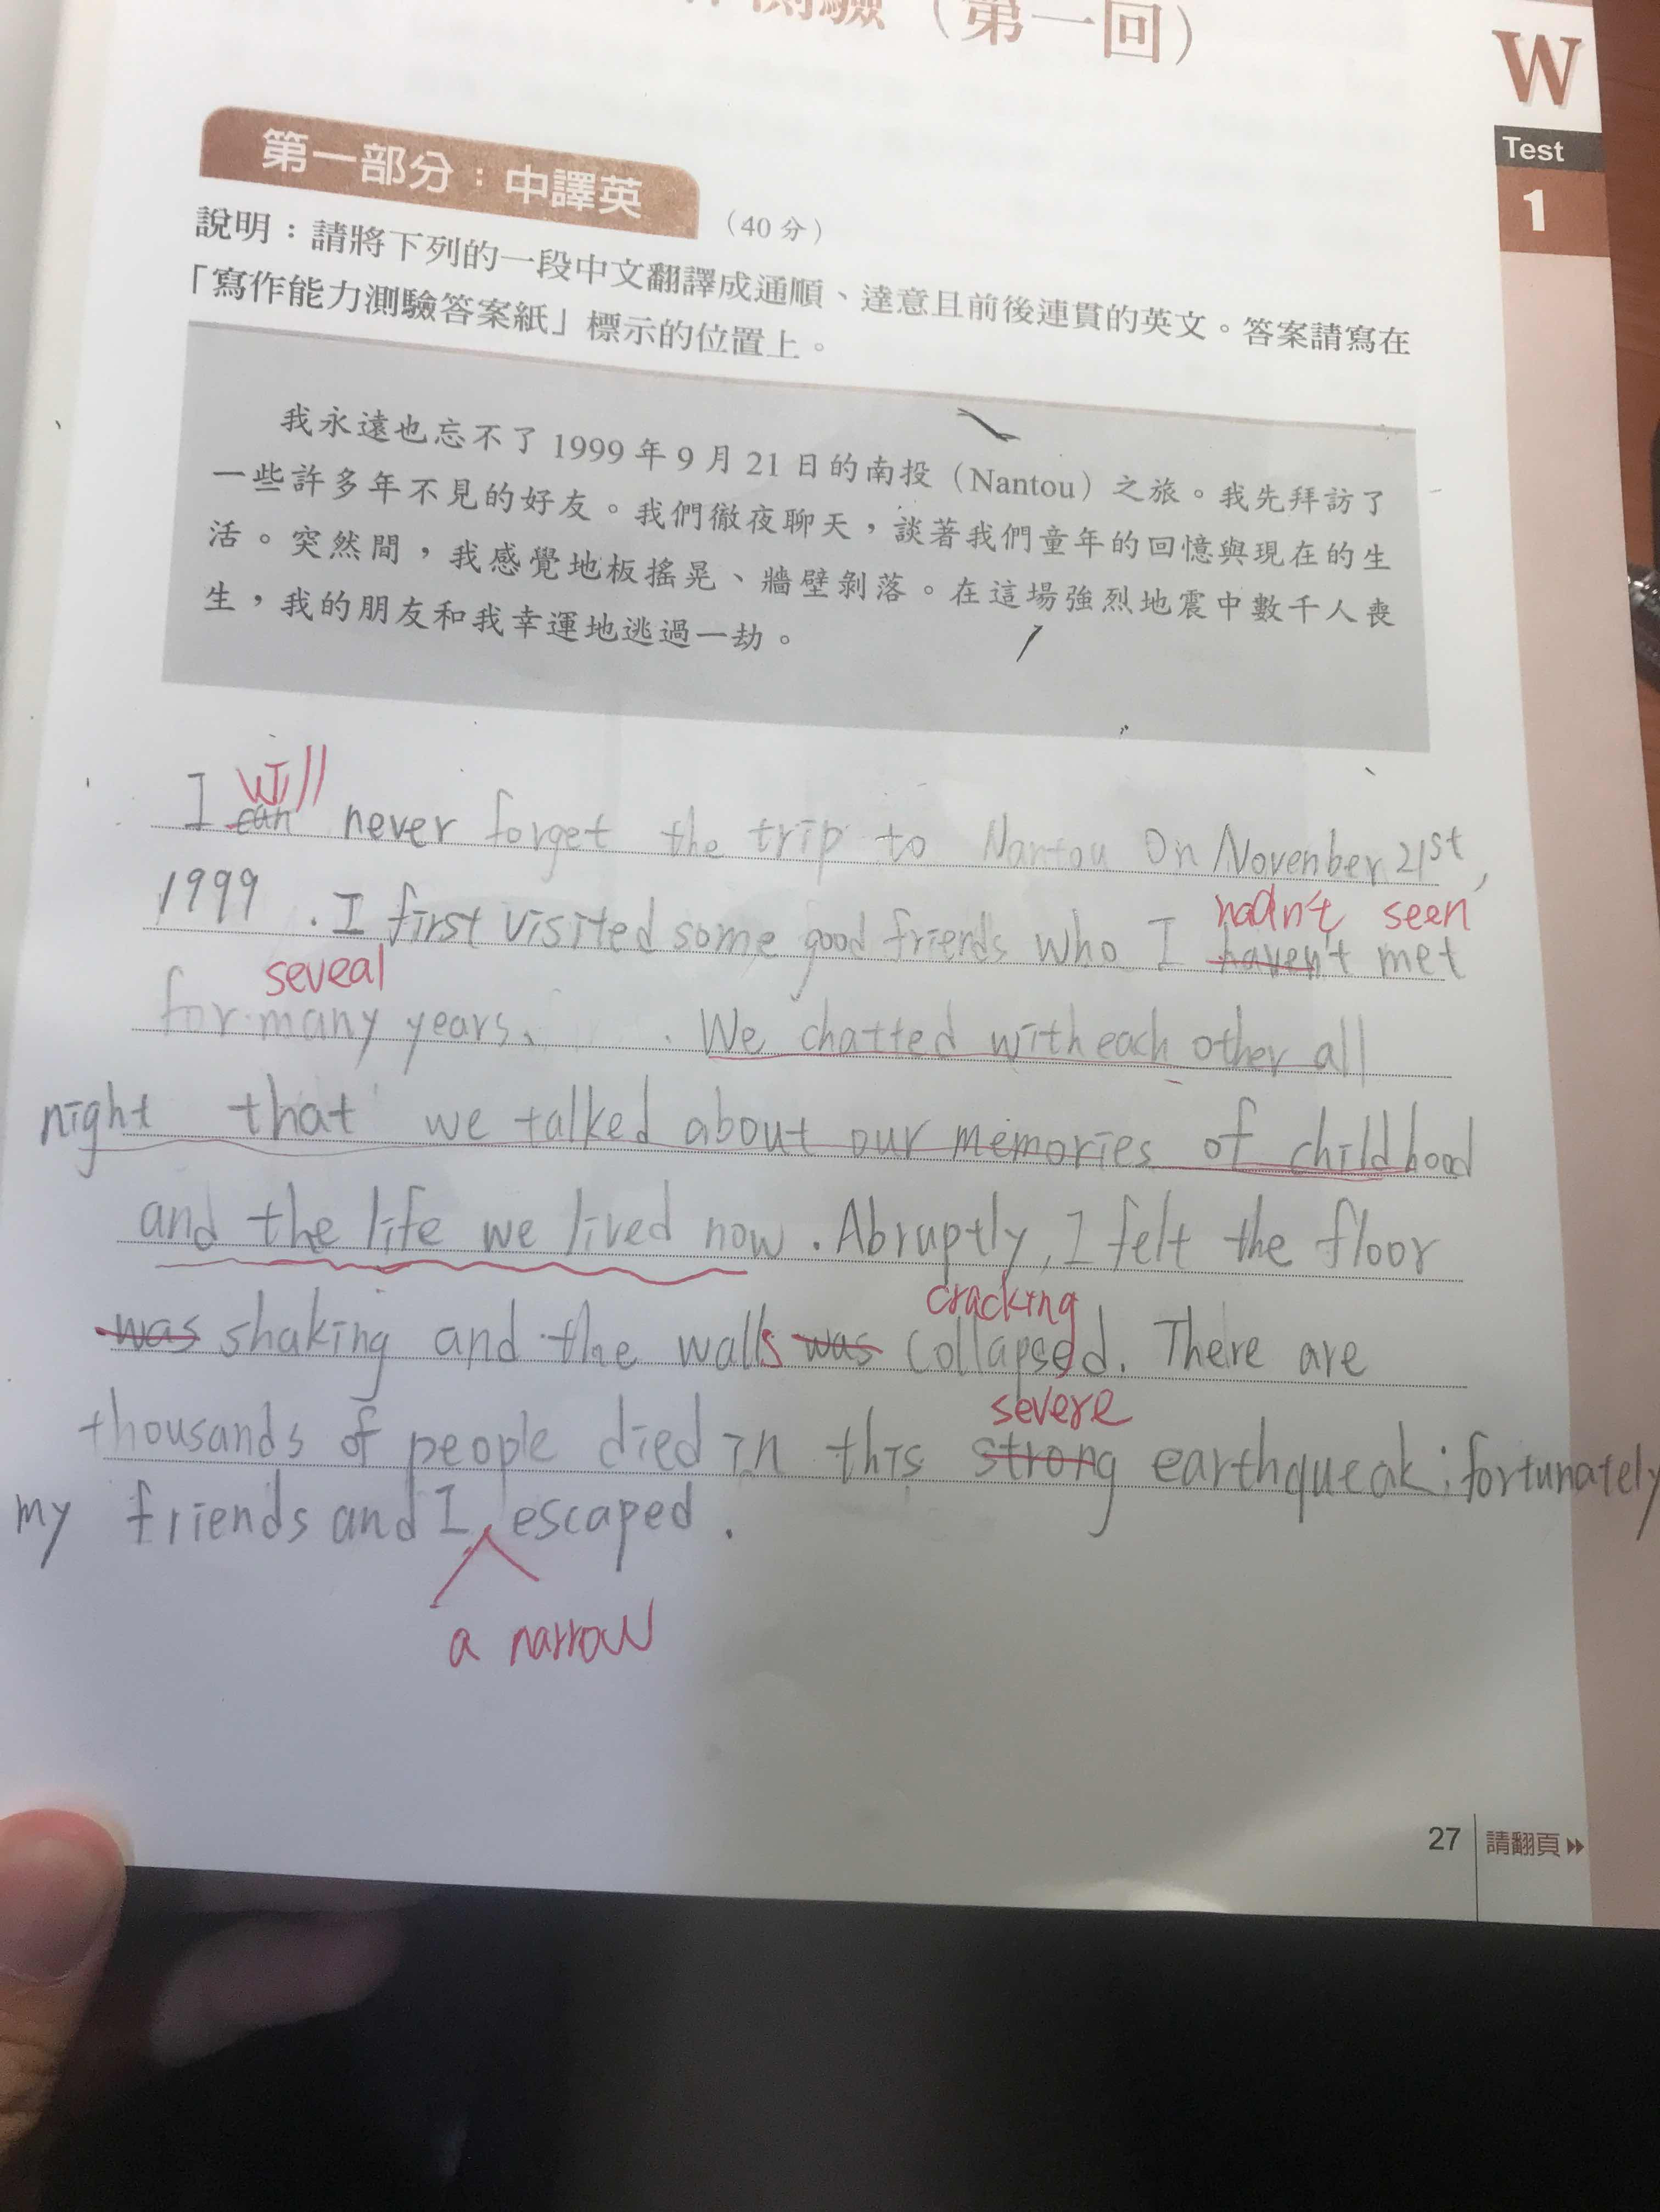 測驗（第一回）
W
Test
1
第一部分：中譯英
（40分）
說明：請將下列的一段中文翻譯成通順、達意且前後連貫的英文。答案請寫在
「寫作能力測驗答案紙」標示的位置上。
我永遠也忘不了1999年9月21日的南投（Nantou）之旅。我先拜訪了
一些許多年不見的好友。我們徹夜聊天，談著我們童年的回憶與現在的生
活。突然間，我感覺地板搖晃、牆壁剝落。在這場強烈地震中數千人喪
生，我的朋友和我幸運地逃過一劫。
will
I can never forget the trip to Nantou on Novenber 21st,
1999. I first visited some good friends who I haven't met
hadn't seen
seveal
for many years. We chatted with each other all
night that we talked about our memories of childhood
and the life we lived now. Abruptly, I felt the floor
cracking
was shaking and the walls was collapsed. There are
severe
thousands of people died in this strong earthqueak; fortunately
my friends and I escaped.
a narrow
27
請翻頁